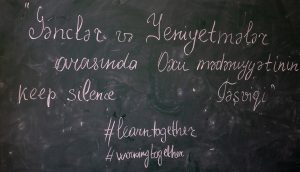 "Gənclər və Yeniyetmələr
arasında Oxu mədəniyyətinin
keep silence Təşviqi"
#learntogether
#workingtogether